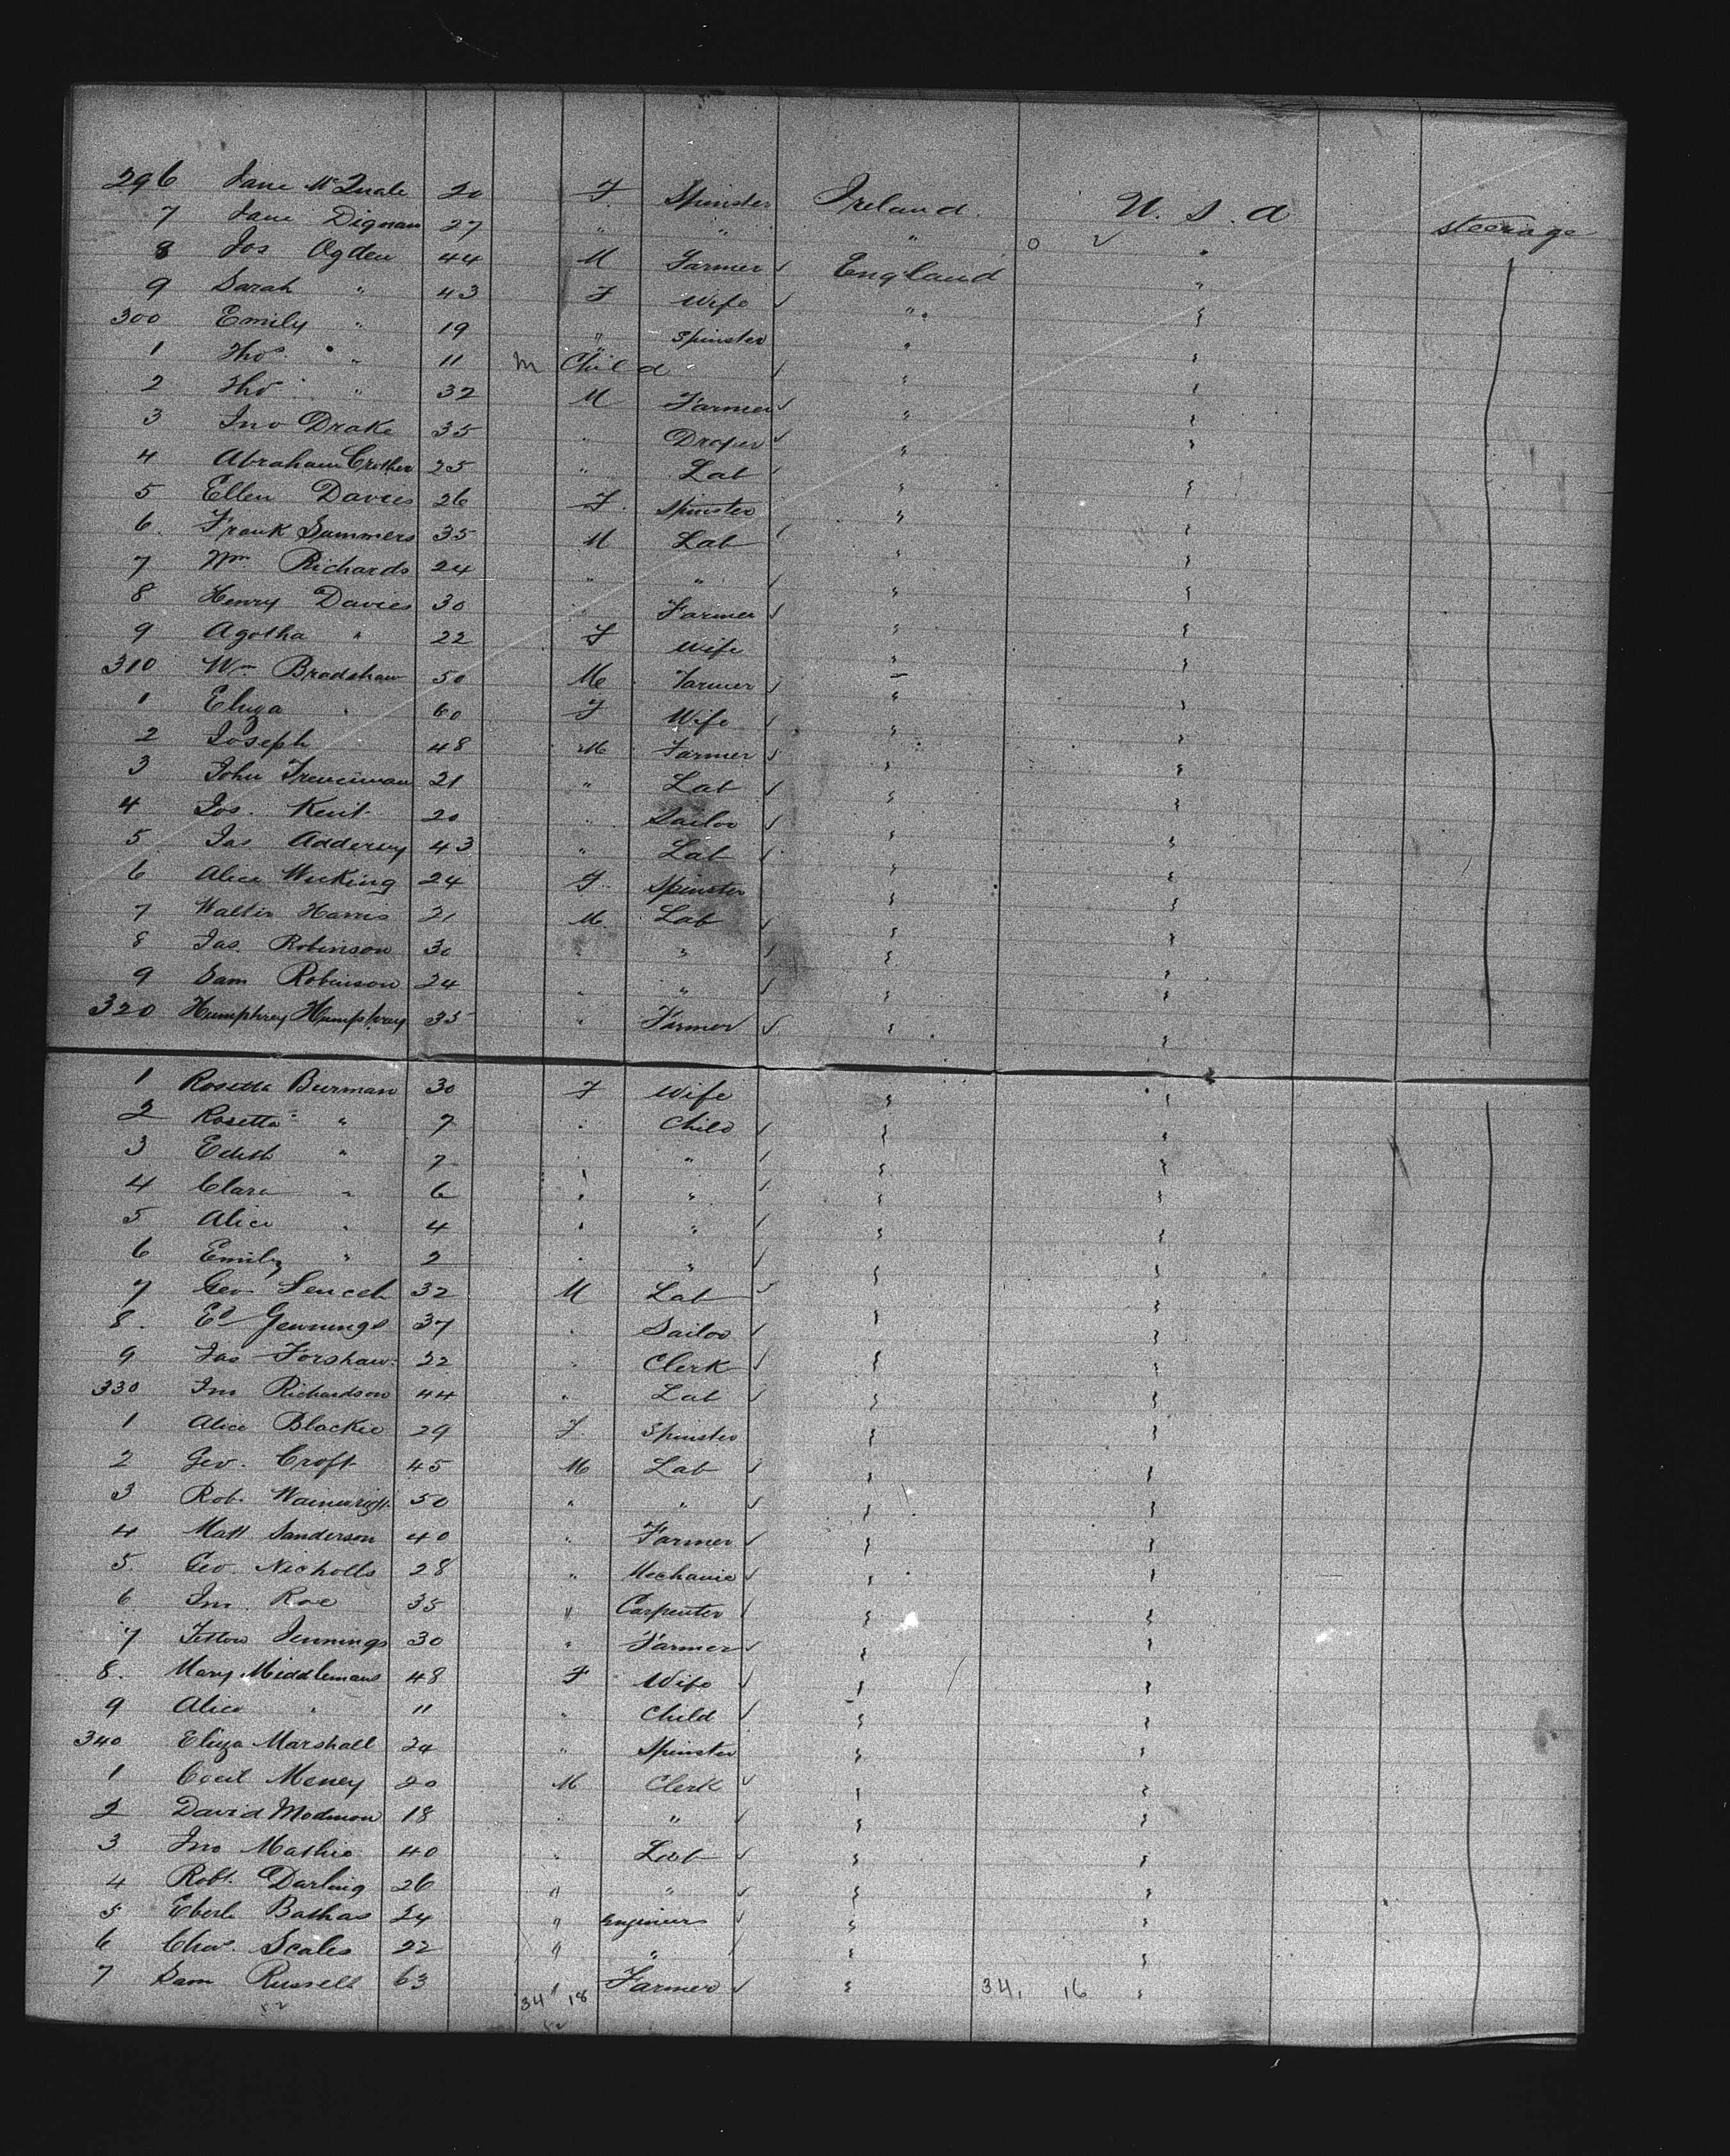 296 Jane McQuale 20 F. Spinster Ireland. U. S. A steerage
7 Jane Dignan 27 " " " o ✓ "
8 Jos Ogden 44 M Farmer ✓ England "
9 Sarah " 43 F Wife ✓ " "
300 Emily " 19 " Spinster " "
1 Thos " 11 m Child ✓ " "
2 Thos " 32 M Farmer ✓ " "
3 Jno Drake 35 " Draper ✓ " "
4 Abraham Crother 25 " Lab ✓ " "
5 Ellen Davies 26 F. Spinster " "
6. Frank Summers 35 M Lab ✓ " "
7 Wm Richards 24 " " ✓ " "
8 Henry Davies 30 " Farmer ✓ " "
9 Agotha " 22 F Wife " "
310 Wm Bradshaw 50 M Farmer ✓ " "
1 Eliza " 60 F Wife ✓ " "
2 Joseph 48 M Farmer ✓ " "
3 John 21 " Lab ✓ " "
4 Jos. Kent 20 " Sailor ✓ " "
5 Jas Adderley 43 " Lab ✓ " "
6 Alice 24 F. Spinster " "
7 Walter Harris 21 M. Lab ✓ " "
8 Jas. Robinson 30 " " ✓ " "
9 Sam Robinson 24 " " ✓ " "
320 Humphrey Humphrey 35 " Farmer ✓ " "
1 Rosetta Burman 30 F Wife " "
2 Rosetta " 7 " Child ✓ " "
3 Edith " 7 " " ✓ " "
4 Clara " 6 " " ✓ " "
5 Alice " 4 " " ✓ " "
6 Emily " 2 " " ✓ " "
7 Geo 32 M Lab ✓ " "
8. Ed Jennings 37 " Sailor ✓ " "
9 Jas Forshaw 22 " Clerk ✓ " "
330 Jno Richardson 44 " Lab ✓ " "
1 Alice Blackie 29 F. Spinster " "
2 Geo. Croft 45 M Lab ✓ " "
3 Rob. Wainwright 50 " " ✓ " "
4 Matt Sanderson 40 " Farmer ✓ " "
5. Geo. Nicholls 28 " Mechanic ✓ " "
6 Jno. Roe 35 " Carpenter ✓ " "
7 Jennings 30 " Farmer ✓ " "
8. Mary Middlemans 48 F Wife ✓ " "
9 Alice " 11 " Child ✓ " "
340 Eliza Marshall 24 " Spinster " "
1 Cecil Meney 20 M Clerk ✓ " "
2 David 18 " " ✓ " "
3 Jno Mathie 40 " Lab ✓ " "
4 Robt. Darling 26 " " ✓ " "
5 24 " Engineers ✓ " "
6 Chas. Scales 22 " " ✓ " "
7 Sam Russell 63 Farmer ✓ " "
52 34 18 34, 16
52